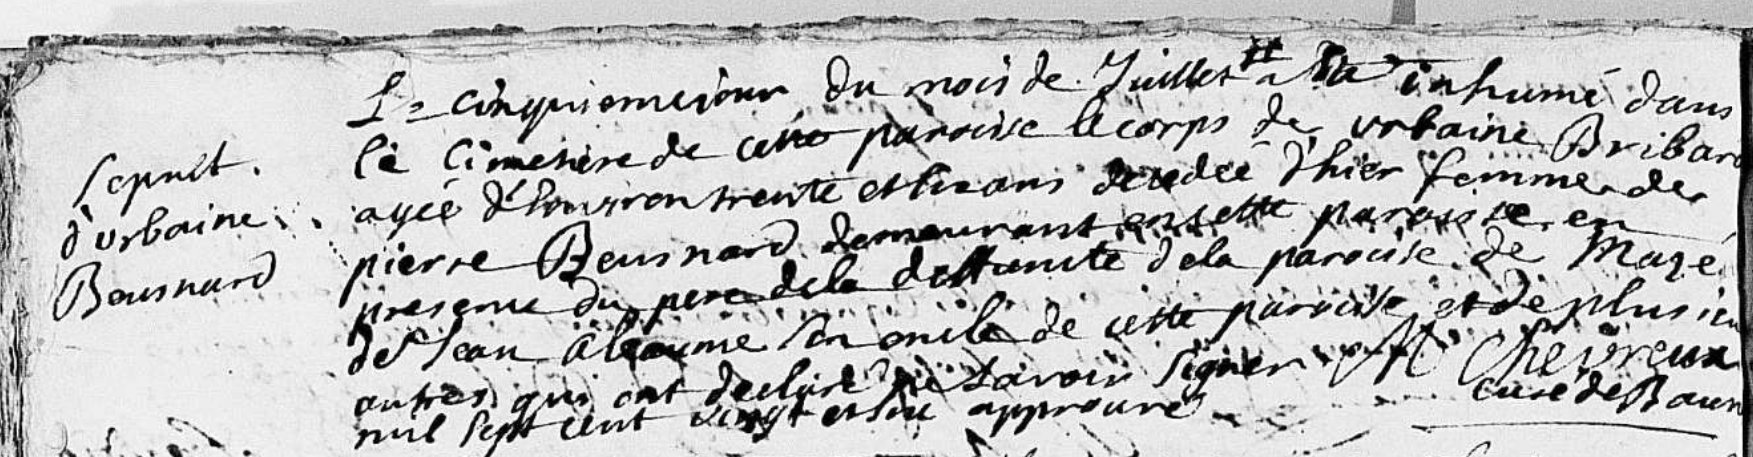 Le cinquiemejour du mois de Juillet a esté inhumé dans
le Cimetiere de cette paroisse le corps de urbaine Bribard
agée d'Environ trente et six ans decedée d'hier femme de
pierre Beusnard demeurant en cette paroisse en
presence du pere de la deffuncte de la paroisse de Mazé
de Jean Aleaume son oncle de cette paroisse et de plusieu
autres qui ont declaré ne savoir signer Chevreux
mil sept cent vingt et six approuvé curé de Baun
Sepult.
d'urbaine
Beusnard